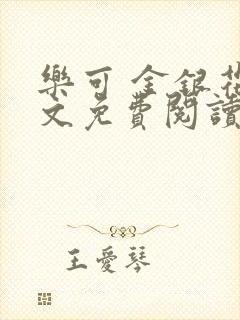 樂可 金銀花
文免費閱讀
王愛琴